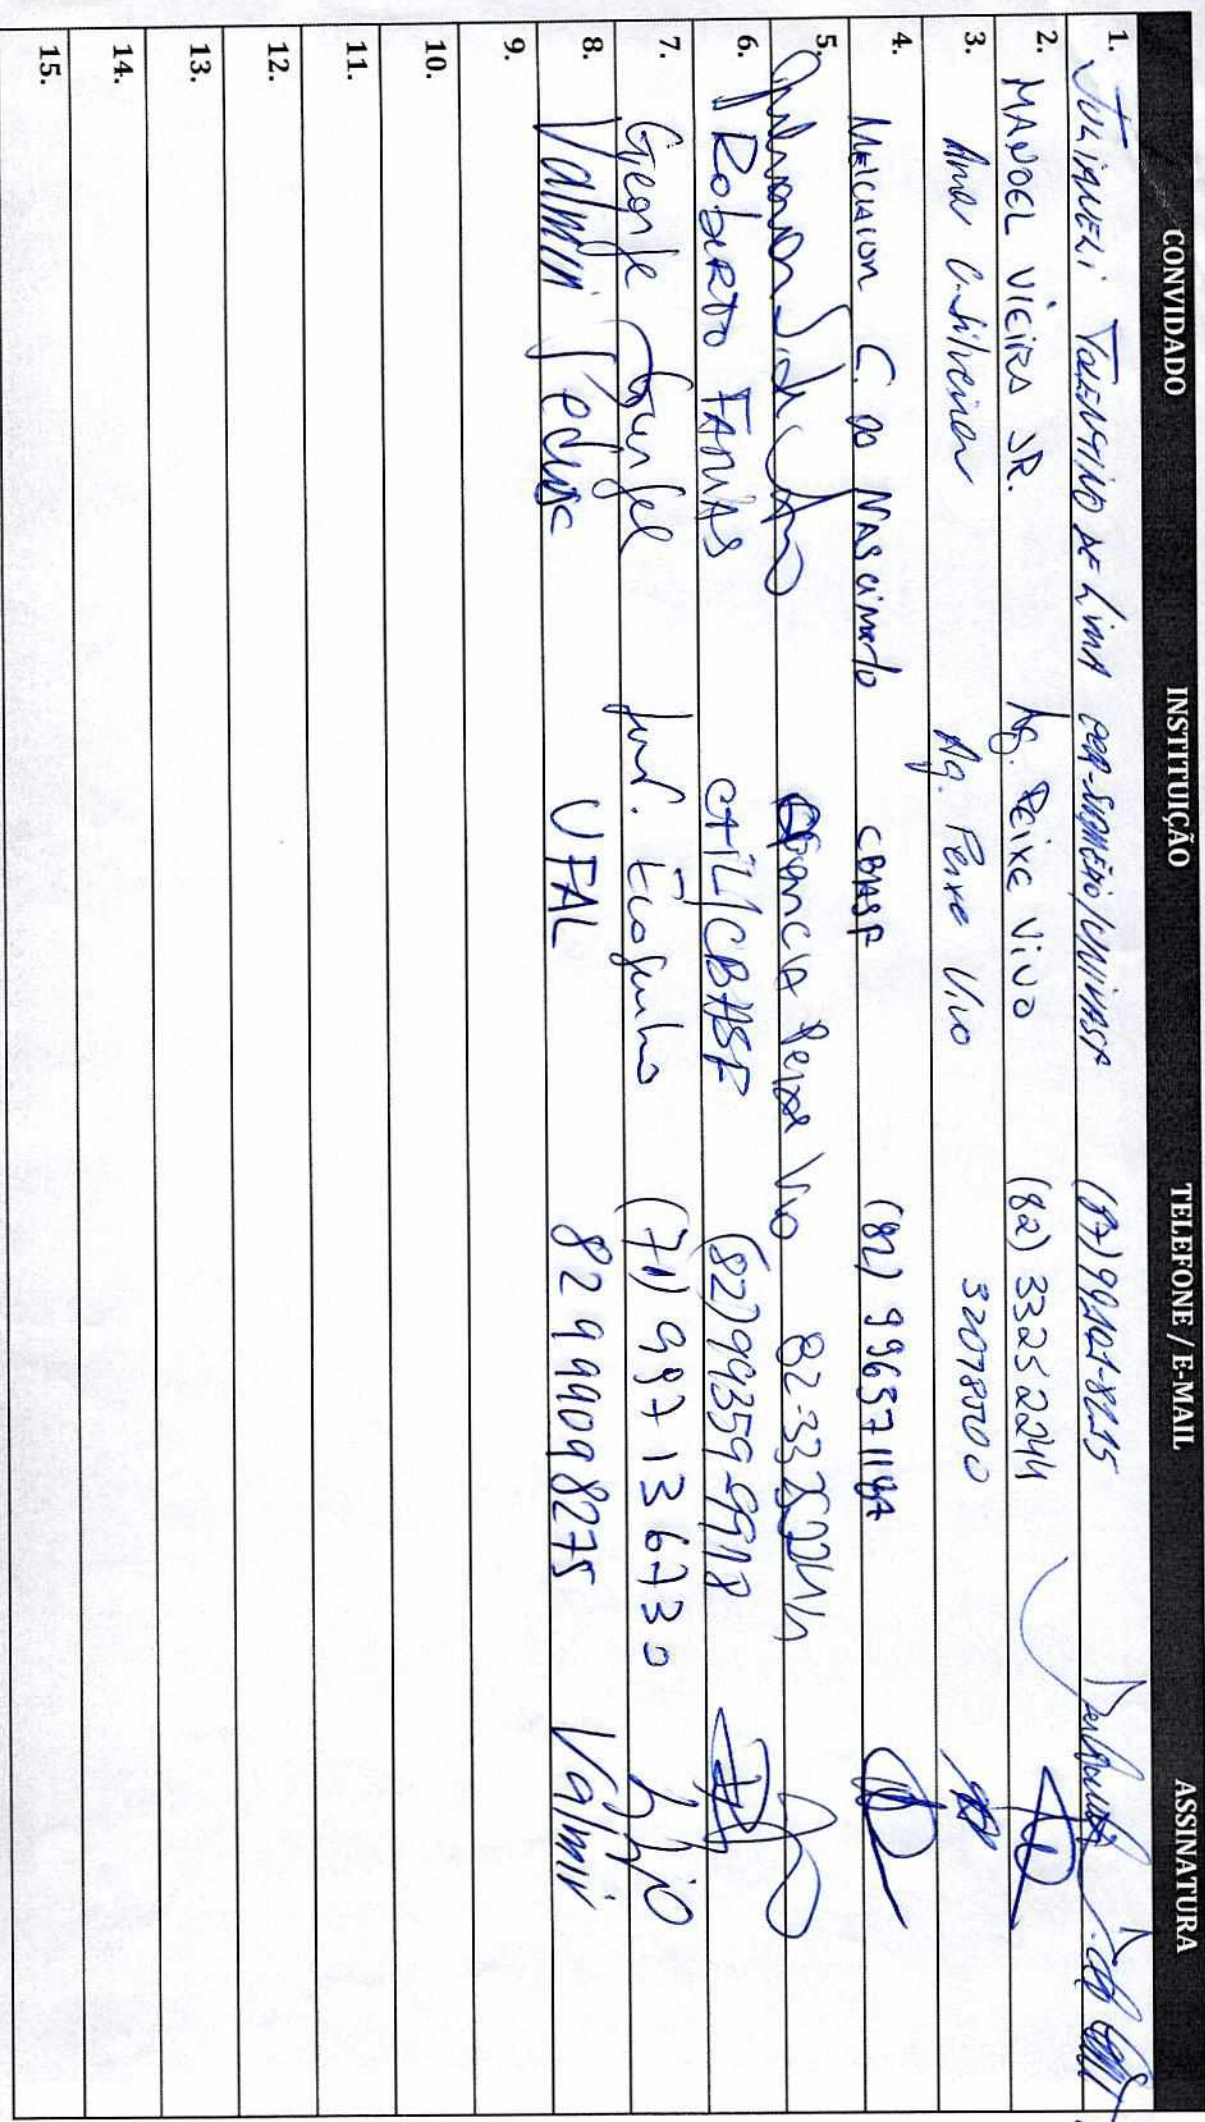 CONVIDADO INSTITUIÇÃO TELEFONE / E-MAIL ASSINATURA
1. JULIANELI TOLENTINO DE LIMA /UNIVASF (87) 99101-8215
2. MANOEL VIEIRA JR. Ag. Peixe Vivo (82) 3325 2244
3. Ana C. Silveira Ag. Peixe Vivo 32078500
4. MELCIADON C. DO NASCIMENTO CBHSF (82) 996371187
5. Agencia Peixe Vivo 82-33252244
6. ROBERTO FARIAS CTIL/CBHSF (82) 99359-9918
7. George Gurgel (71) 997136730
8. Valmir Pedrosa UFAL 82 999098275 Valmir
9.
10.
11.
12.
13.
14.
15.